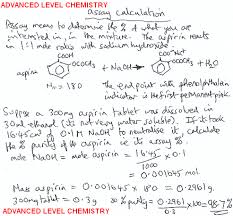 ADVANCED LEVEL CHEMISTRY
assay calculation
Assay means to determine the % of what you are
interested in, in the mixture. The aspirin reacts
in 1:1 mole ratio with sodium hydroxide.
aspirin + NaOH →
M = 180
The endpoint with phenolphthalein
indicator is the first permanent pink
Suppose a 300mg aspirin tablet was dissolved in
30ml ethanol (its not very water soluble). If it took
16.45cm³ of 0.1M NaOH to neutralise it, calculate
the % purity of the aspirin ie its assay %
mole NaOH = mole aspirin = 16.45/1000 × 0.1
= 0.001645
Mass aspirin = 0.001645 × 180 = 0.2961g
300mg tablet = 0.3g so % purity = 0.2961/0.3 × 100 = 98.7%
ADVANCED LEVEL CHEMISTRY